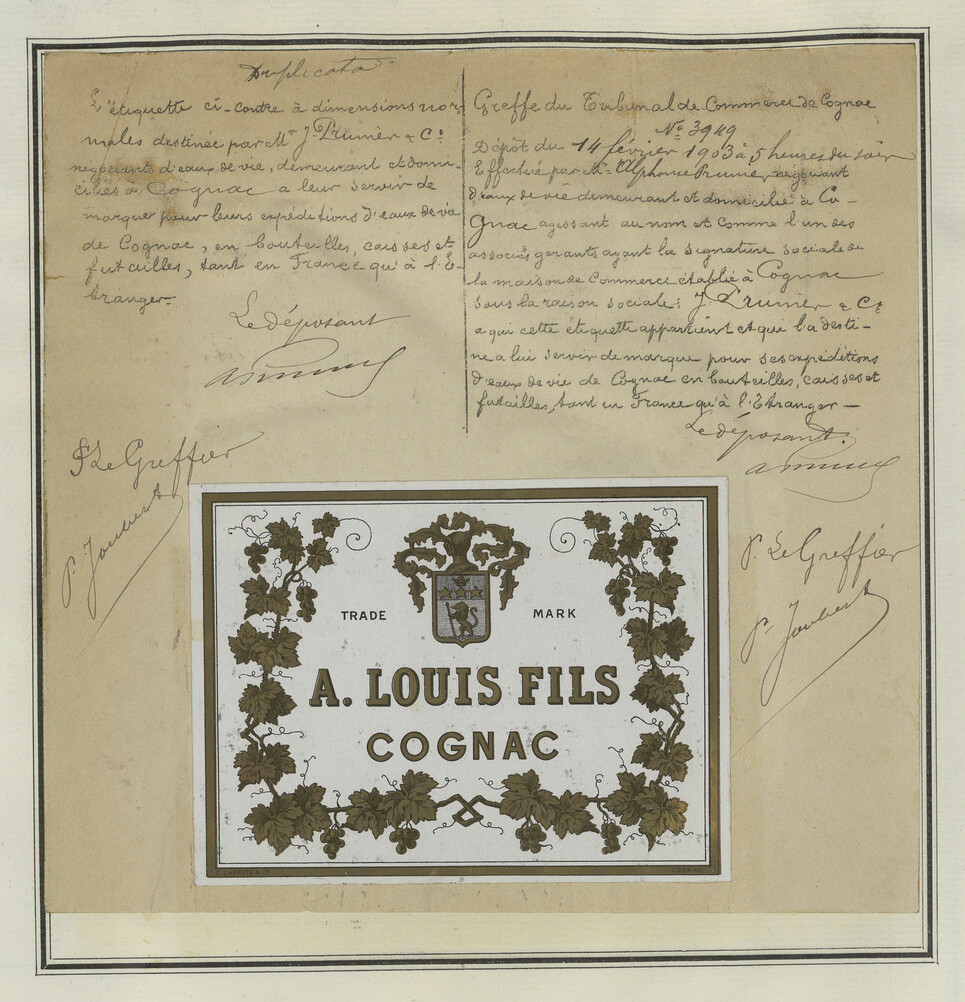 Duplicata
L'étiquette ci-contre à dimensions nor-
males destinée par Mr J. Prunier & Cie
négociants d'eaux de vie, demeurant et domi-
ciliés à Cognac a leur servir de
marque pour leurs expéditions d'eaux de vie
de Cognac, en bouteilles, caisses et
futailles, tant en France qu'à l'E-
tranger.
Le déposant
APrunier
P. Le Greffier
P. Joubert
Greffe du Tribunal de Commerce de Cognac
No 3949
Dépôt du 14 février 1903 à 5 heures du soir
Effectué par Mr Alphonse Prunier négociant
d'eaux de vie demeurant et domicilié à Co-
gnac agissant au nom et comme l'un des
associés gérants ayant la signature sociale de
la maison de Commerce établie à Cognac
sous la raison sociale: J. Prunier & Cie
a qui cette étiquette appartient et qui l'a desti-
ne a lui servir de marque pour ses expéditions
d'eaux de vie de Cognac en bouteilles, caisses et
futailles, tant en France qu'à l'Etranger —
Le déposant.
APrunier
P. Le Greffier
P. Joubert
TRADE MARK
A. LOUIS FILS
COGNAC
C. LAFFITE & Cie COGNAC